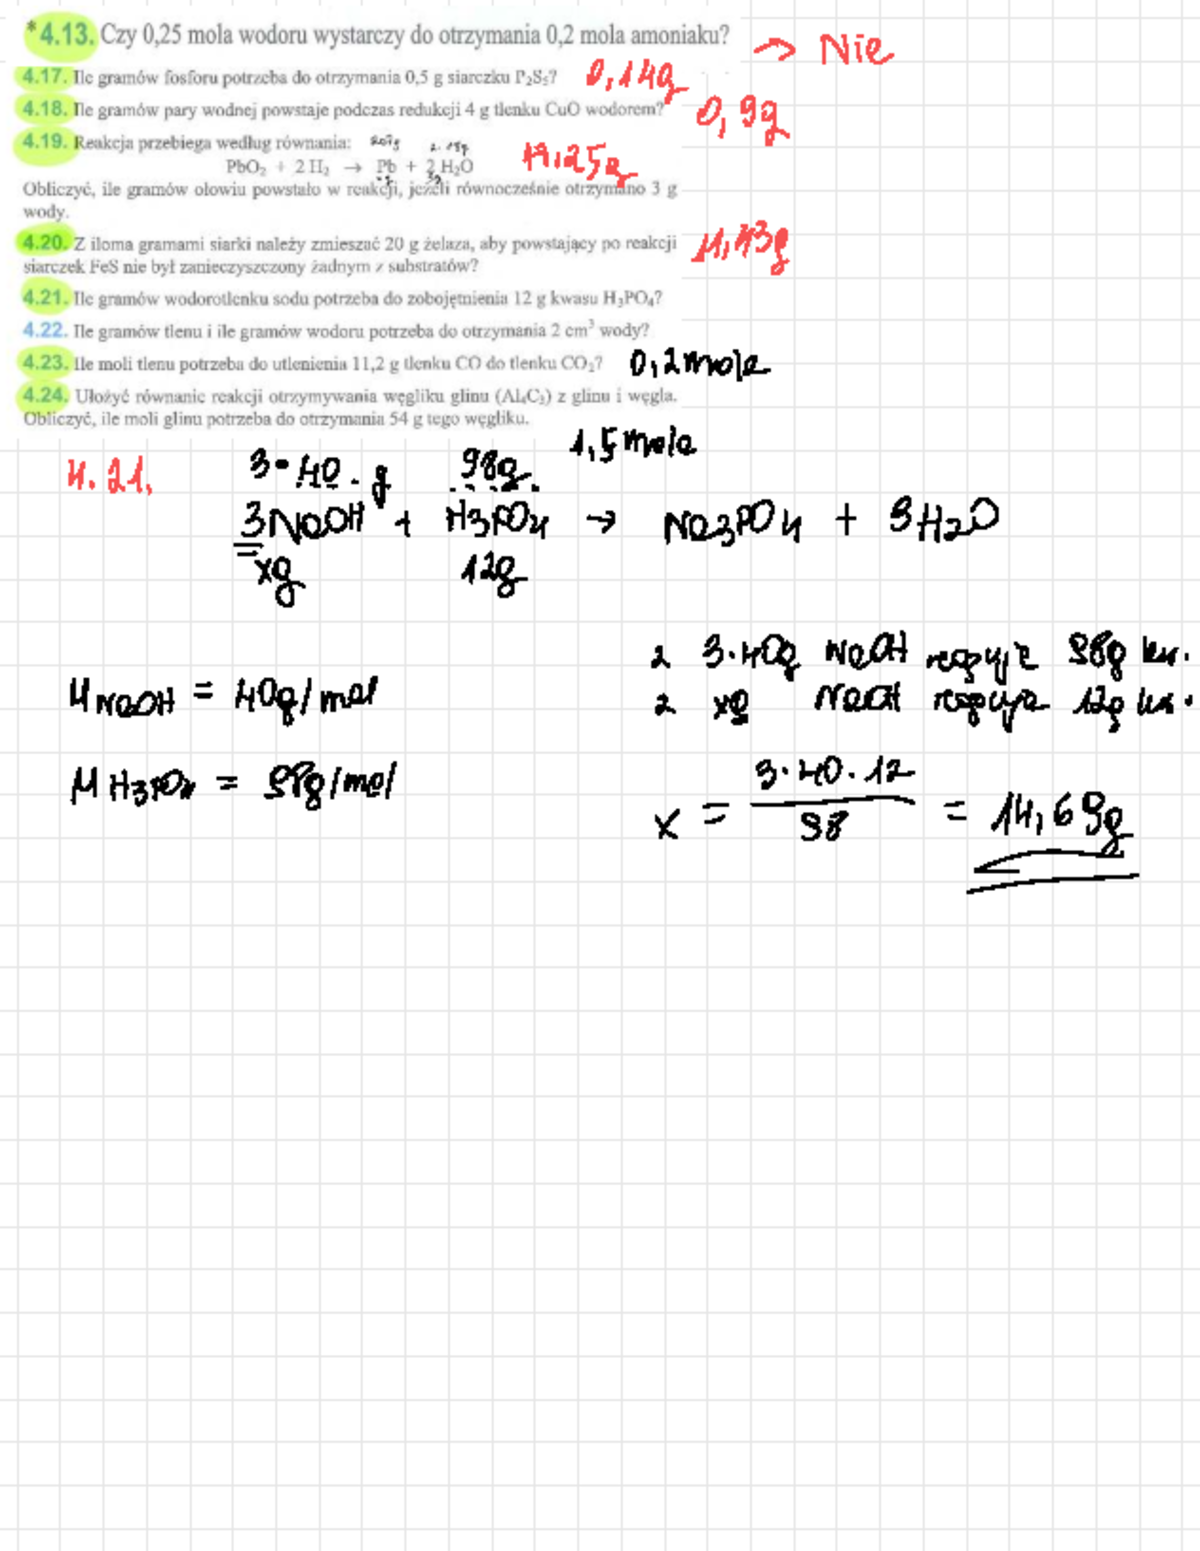 *4.13. Czy 0,25 mola wodoru wystarczy do otrzymania 0,2 mola amoniaku? → Nie
4.17. Ile gramów fosforu potrzeba do otrzymania 0,5 g siarczku P₂S₅? 0,14g
4.18. Ile gramów pary wodnej powstaje podczas redukcji 4 g tlenku CuO wodorem? 0,9g
4.19. Reakcja przebiega według równania: 207g 2·18g
PbO₂ + 2 H₂ → Pb + 2 H₂O 17,25g
xg 3g
Obliczyć, ile gramów ołowiu powstało w reakcji, jeżeli równocześnie otrzymano 3 g
wody.
4.20. Z iloma gramami siarki należy zmieszać 20 g żelaza, aby powstający po reakcji 11,43g
siarczek FeS nie był zanieczyszczony żadnym z substratów?
4.21. Ile gramów wodorotlenku sodu potrzeba do zobojętnienia 12 g kwasu H₃PO₄?
4.22. Ile gramów tlenu i ile gramów wodoru potrzeba do otrzymania 2 cm³ wody?
4.23. Ile moli tlenu potrzeba do utlenienia 11,2 g tlenku CO do tlenku CO₂? 0,2 mola
4.24. Ułożyć równanie reakcji otrzymywania węgliku glinu (Al₄C₃) z glinu i węgla.
Obliczyć, ile moli glinu potrzeba do otrzymania 54 g tego węgliku.
1,5 mola
4.21. 3·40·g 98g
3NaOH + H3PO4 → Na3PO4 + 3H2O
xg 12g
z 3·40g NaOH reaguje 98g kw.
z xg NaOH reaguje 12g kw.
MNaOH = 40g/mol
MH3PO4 = 98g/mol
x = 3·40·12 / 98 = 14,69g